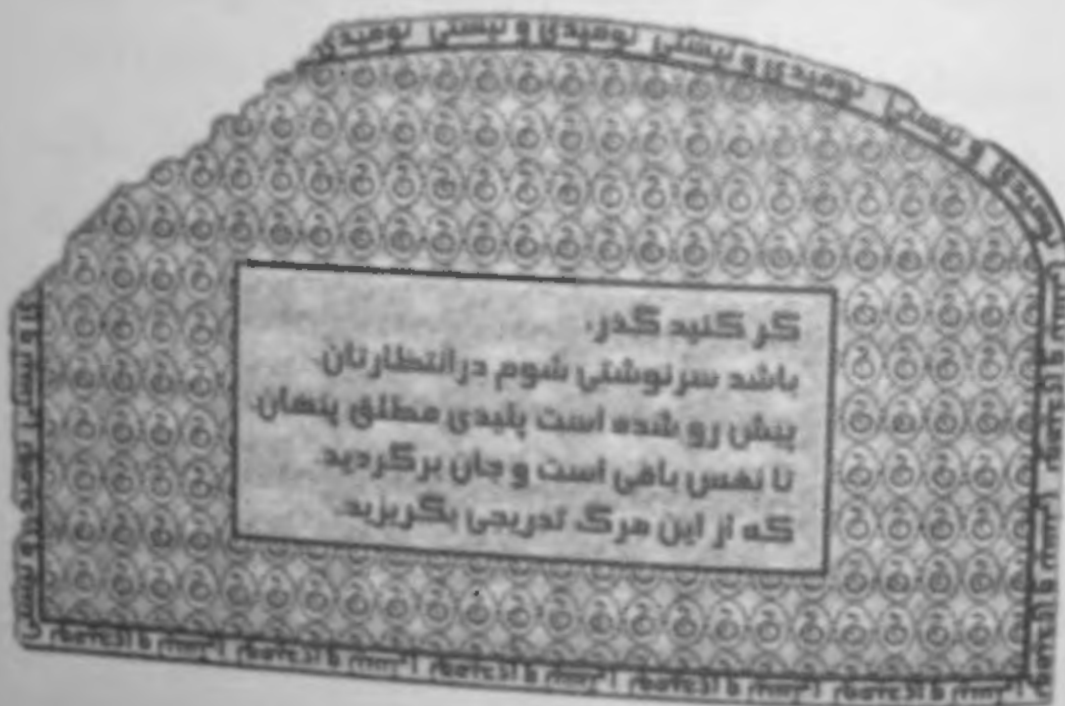 نومیدی و نیستی نومیدی و نیستی نومیدی و نیستی نومیدی و نیستی
گر کنید گذر،
باشد سرنوشتی شوم در انتظارتان.
پیش رو شده است پلیدی مطلق پنهان.
تا نفس باقی است و جان برگردید
که از این مرگ تدریجی بگریزید.